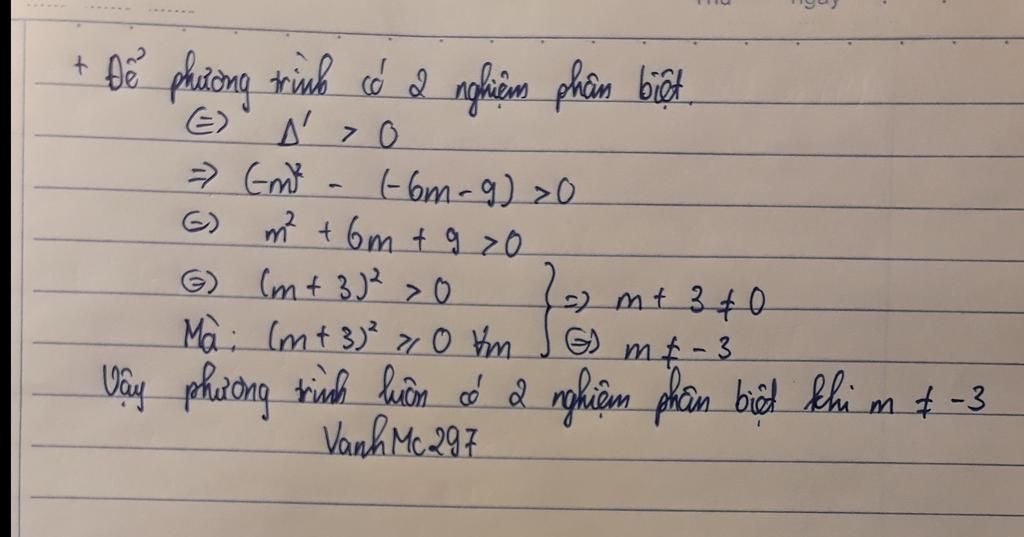 Thứ ngày
+ Để phương trình có 2 nghiệm phân biệt.
⇔ Δ' > 0
⇒ (-m)² - (-6m - 9) > 0
⇔ m² + 6m + 9 > 0
⇔ (m + 3)² > 0 } ⇒ m + 3 ≠ 0
Mà: (m + 3)² ≥ 0 ∀m ⇔ m ≠ -3
Vậy phương trình luôn có 2 nghiệm phân biệt khi m ≠ -3
VanhMc297